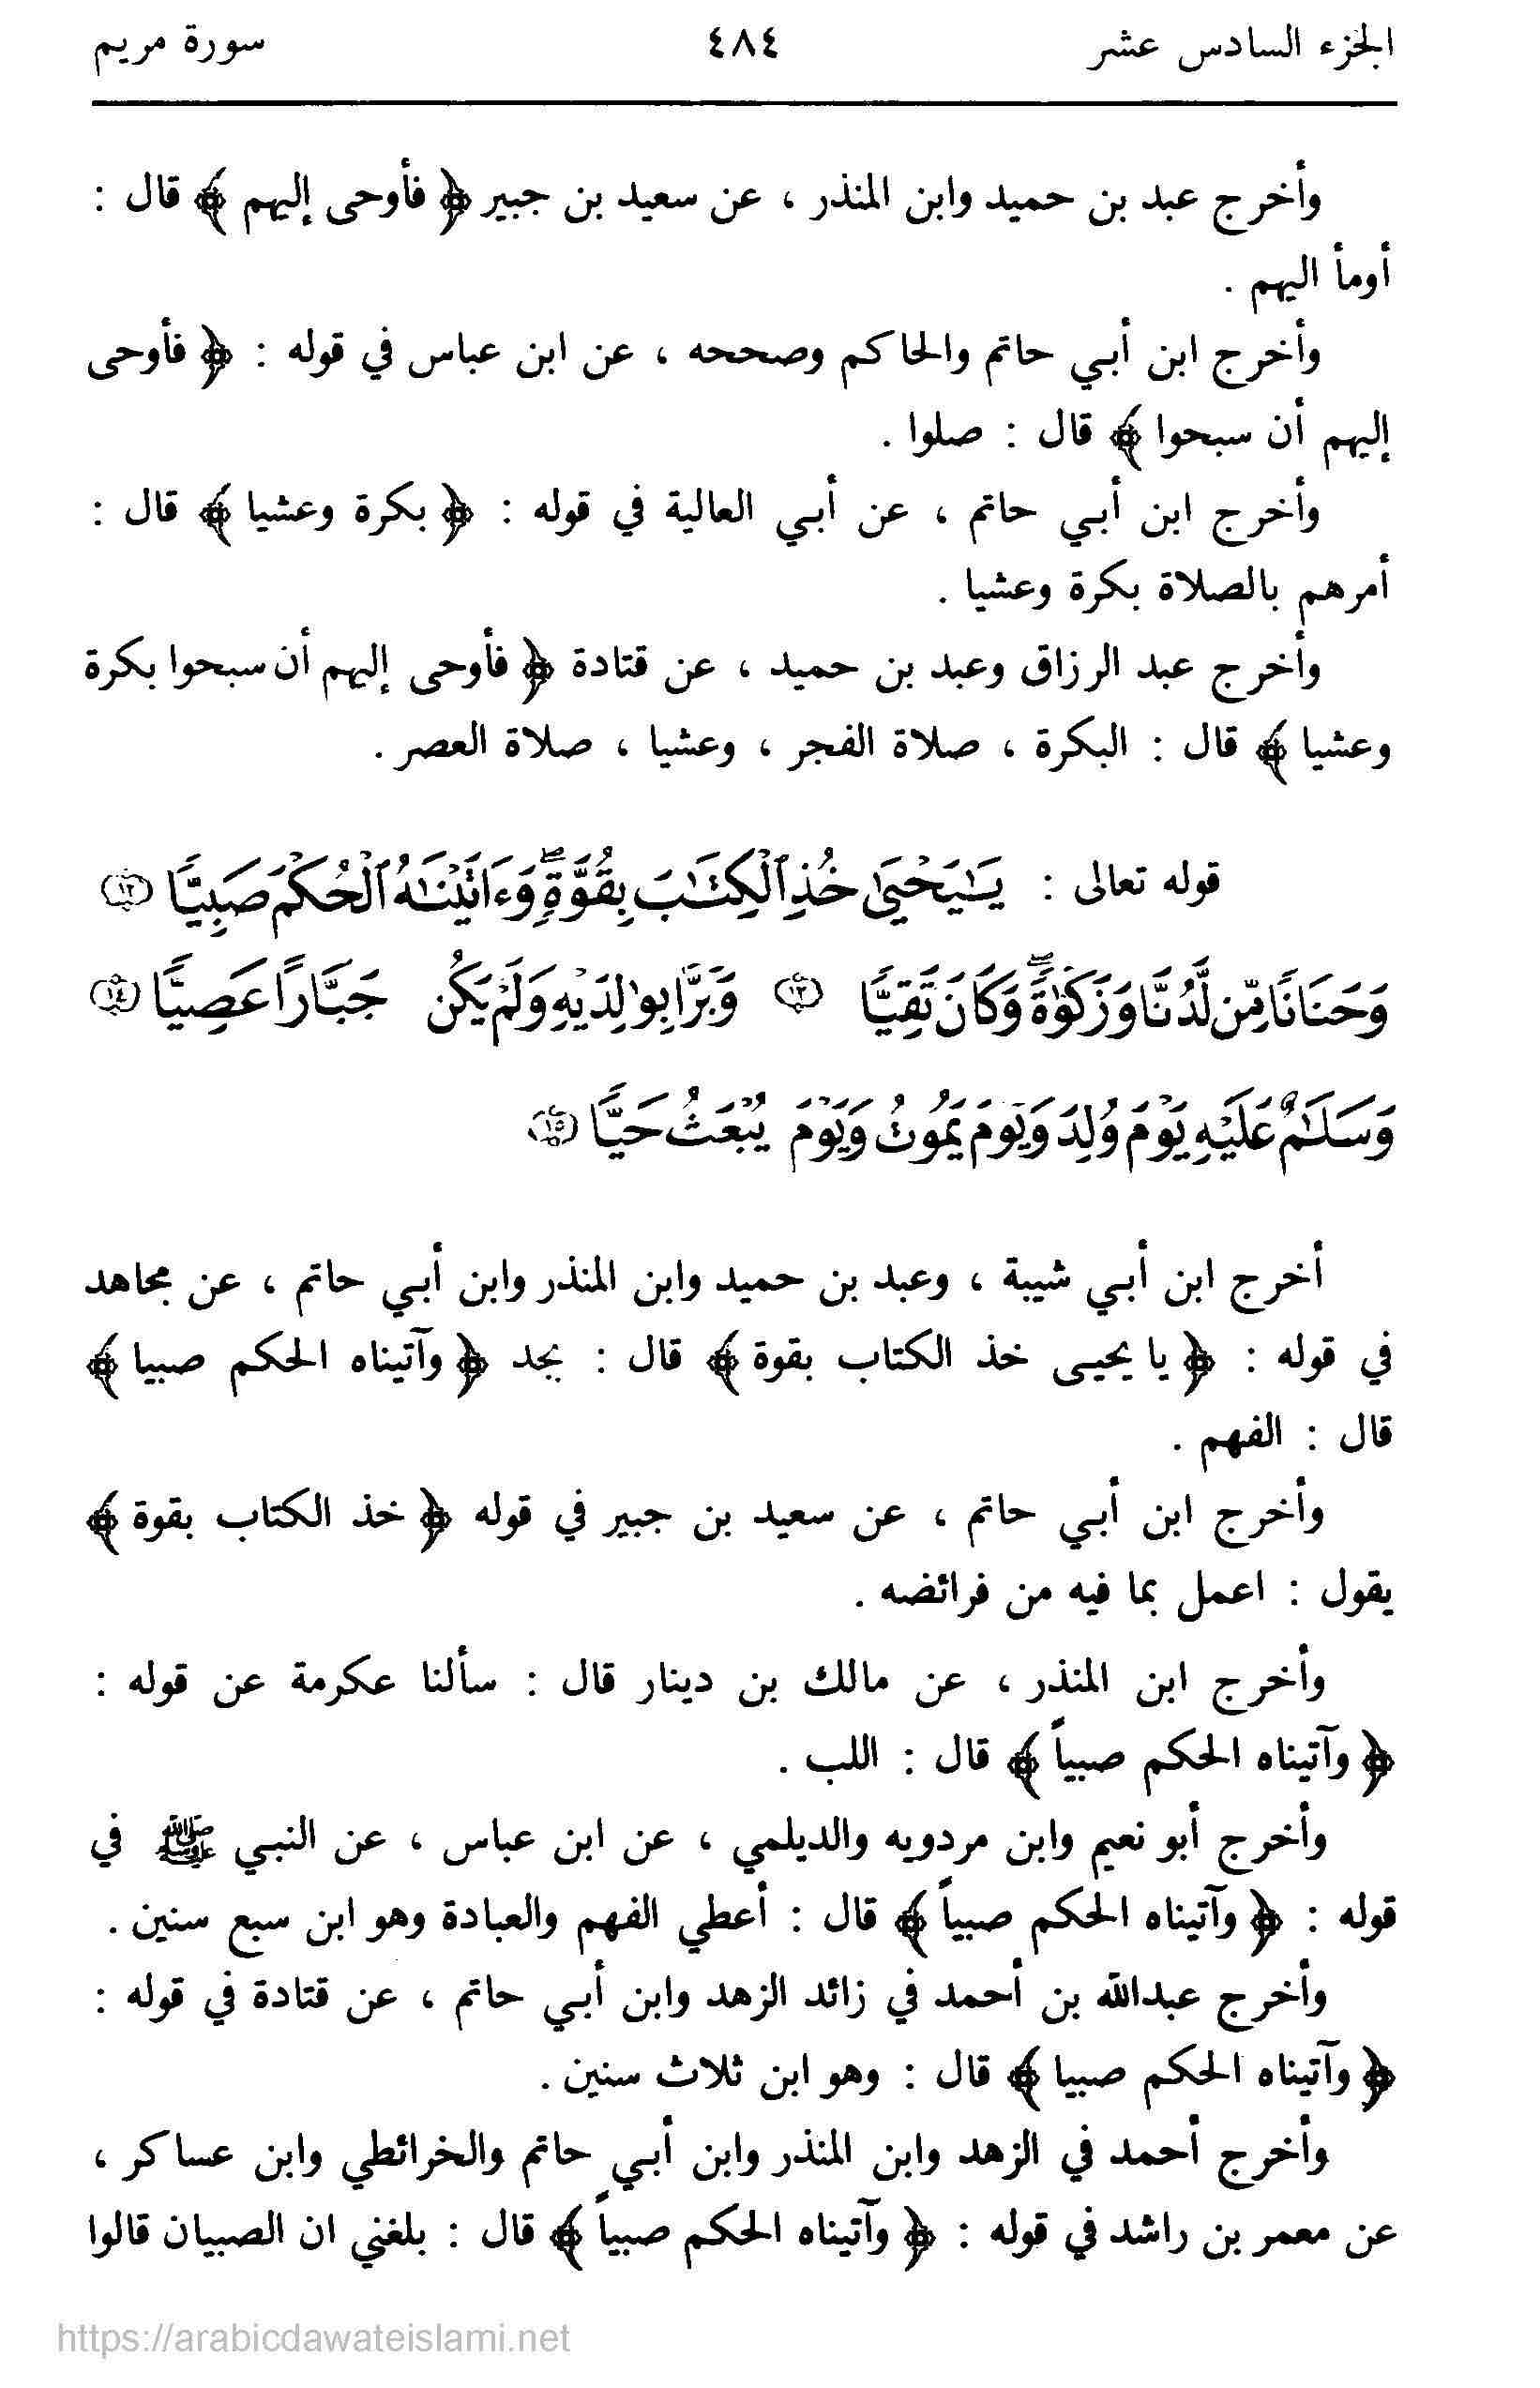 الجزء السادس عشر ٤٨٤ سورة مريم
وأخرج عبد بن حميد وابن المنذر ، عن سعيد بن جبير ﴿ فأوحى إليهم ﴾ قال :
أومأ اليهم .
وأخرج ابن أبي حاتم والحاكم وصححه ، عن ابن عباس في قوله : ﴿ فأوحى
إليهم أن سبحوا ﴾ قال : صلوا .
وأخرج ابن أبي حاتم ، عن أبي العالية في قوله : ﴿ بكرة وعشيا ﴾ قال :
أمرهم بالصلاة بكرة وعشيا .
وأخرج عبد الرزاق وعبد بن حميد ، عن قتادة ﴿ فأوحى إليهم أن سبحوا بكرة
وعشيا ﴾ قال : البكرة ، صلاة الفجر ، وعشيا ، صلاة العصر .
قوله تعالى : يَٰيَحْيَىٰ خُذِ ٱلْكِتَٰبَ بِقُوَّةٍۖ وَءَاتَيْنَٰهُ ٱلْحُكْمَ صَبِيًّا ١٢
وَحَنَانًا مِّن لَّدُنَّا وَزَكَوٰةًۖ وَكَانَ تَقِيًّا ١٣ وَبَرًّۢا بِوَٰلِدَيْهِ وَلَمْ يَكُن جَبَّارًا عَصِيًّا ١٤
وَسَلَٰمٌ عَلَيْهِ يَوْمَ وُلِدَ وَيَوْمَ يَمُوتُ وَيَوْمَ يُبْعَثُ حَيًّا ١٥
أخرج ابن أبي شيبة ، وعبد بن حميد وابن المنذر وابن أبي حاتم ، عن مجاهد
في قوله : ﴿ يا يحيى خذ الكتاب بقوة ﴾ قال : بجد ﴿ وآتيناه الحكم صبيا ﴾
قال : الفهم .
وأخرج ابن أبي حاتم ، عن سعيد بن جبير في قوله ﴿ خذ الكتاب بقوة ﴾
يقول : اعمل بما فيه من فرائضه .
وأخرج ابن المنذر ، عن مالك بن دينار قال : سألنا عكرمة عن قوله :
﴿ وآتيناه الحكم صبياً ﴾ قال : اللب .
وأخرج أبو نعيم وابن مردويه والديلمي ، عن ابن عباس ، عن النبي ﷺ في
قوله : ﴿ وآتيناه الحكم صبياً ﴾ قال : أعطي الفهم والعبادة وهو ابن سبع سنين .
وأخرج عبدالله بن أحمد في زائد الزهد وابن أبي حاتم ، عن قتادة في قوله :
﴿ وآتيناه الحكم صبيا ﴾ قال : وهو ابن ثلاث سنين .
وأخرج أحمد في الزهد وابن المنذر وابن أبي حاتم والخرائطي وابن عساكر ،
عن معمر بن راشد في قوله : ﴿ وآتيناه الحكم صبياً ﴾ قال : بلغني ان الصبيان قالوا
https://arabicdawateislami.net